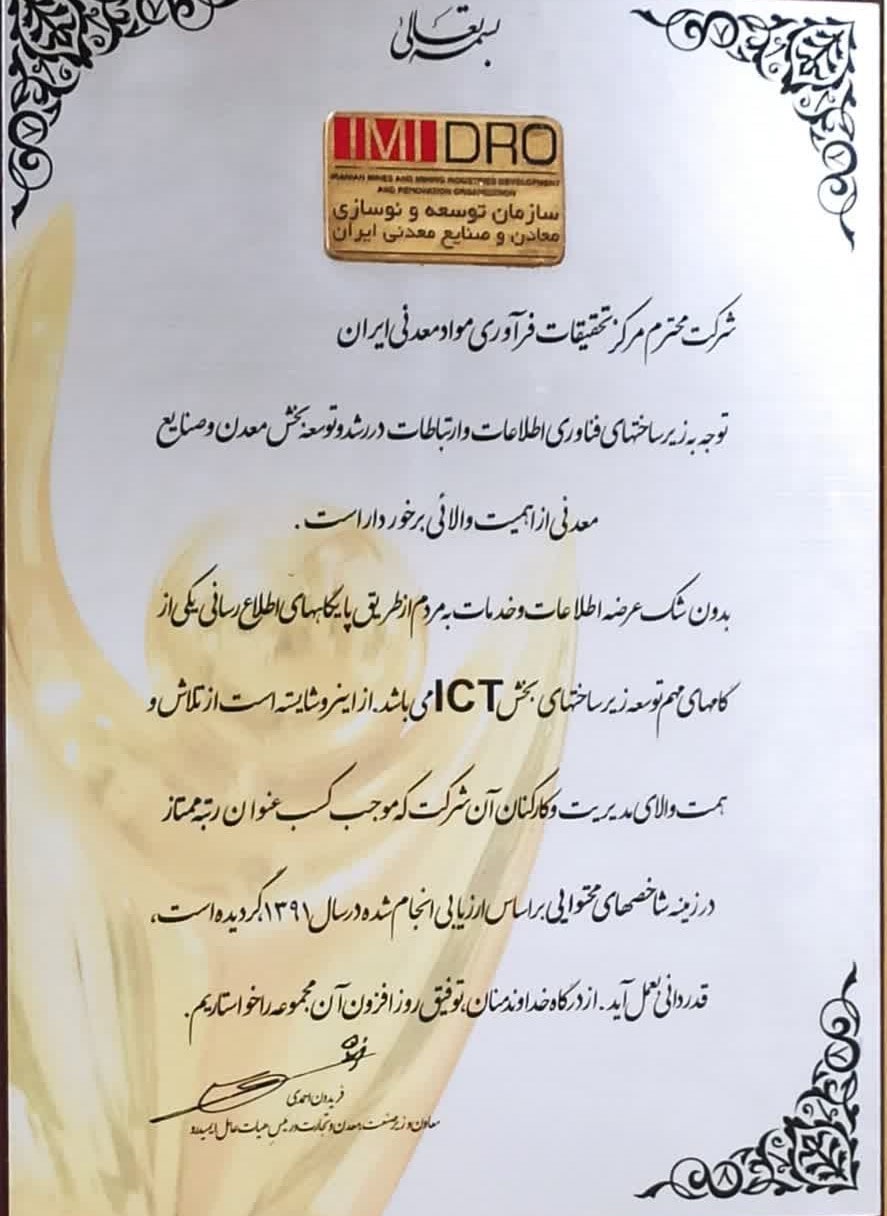 بسمه تعالی
IMIDRO
IRANIAN MINES AND MINING INDUSTRIES DEVELOPMENT
AND RENOVATION ORGANIZATION
سازمان توسعه و نوسازی
معادن و صنایع معدنی ایران
شرکت محترم مرکز تحقیقات فرآوری مواد معدنی ایران
توجه به زیرساختهای فناوری اطلاعات و ارتباطات در رشد و توسعه بخش معدن و صنایع
معدنی از اهمیت والائی برخوردار است .
بدون شک عرضه اطلاعات و خدمات به مردم از طریق پایگاههای اطلاع رسانی یکی از
گامهای مهم توسعه زیرساختهای بخش ICT می باشد. از اینرو شایسته است از تلاش و
همت والای مدیریت و کارکنان آن شرکت که موجب کسب عنوان رتبه ممتاز
در زمینه شاخصهای محتوایی براساس ارزیابی انجام شده در سال ۱۳۹۱ گردیده است،
قدردانی بعمل آید. از درگاه خداوند منان، توفیق روزافزون آن مجموعه را خواستاریم.
فریدون احمدی
معاون وزیر صنعت، معدن و تجارت و رئیس هیات عامل ایمیدرو